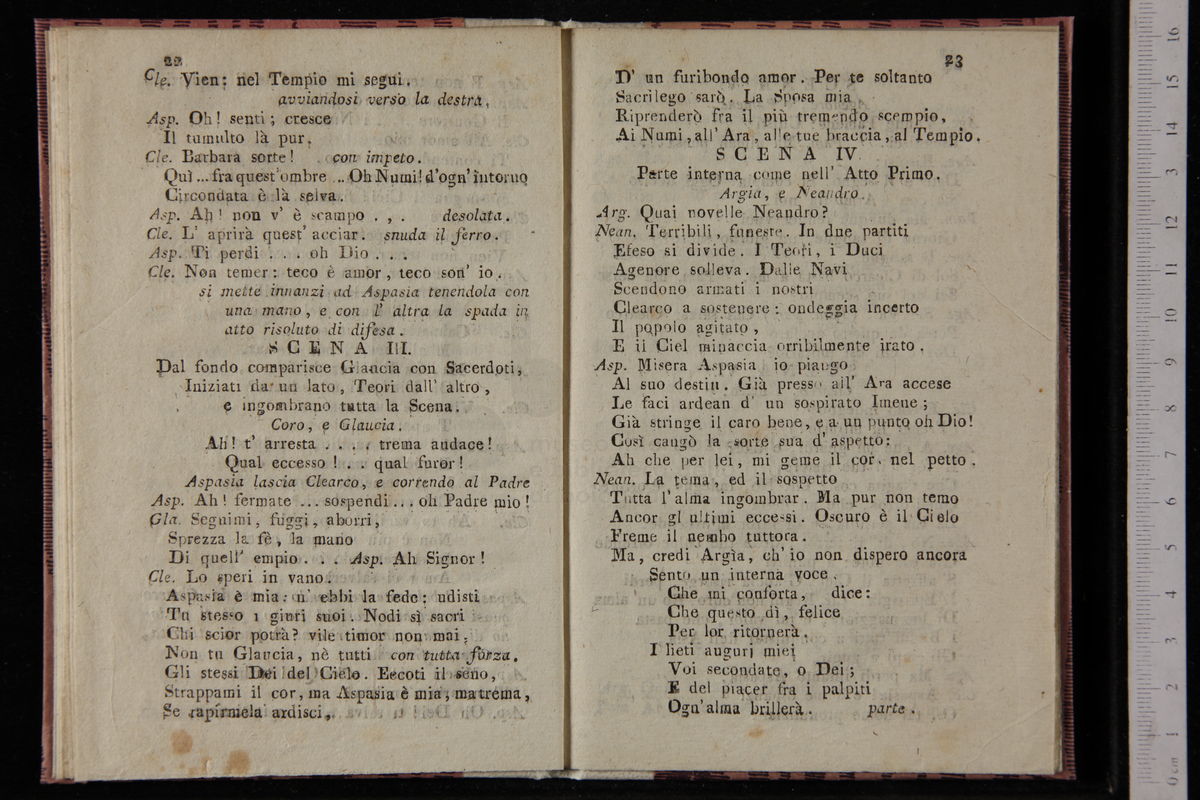 22
Cle. Vien: nel Tempio mi segui.
avviandosi verso la destra,
Asp. Oh! senti; cresce
Il tumulto là pur.
Cle. Barbara sorte! con impeto.
Quì ... fra quest'ombre ... Oh Numi! d'ogn' intorno
Circondata è là selva.
Asp. Ah! non v' è scampo . , . desolata.
Cle. L' aprirà quest' acciar. snuda il ferro.
Asp. Ti perdi . . . oh Dio . . .
Cle. Non temer: teco è amor, teco son' io.
si mette innanzi ad Aspasia tenendola con
una mano, e con l' altra la spada in
atto risoluto di difesa.
SCENA III.
Dal fondo comparisce Glaucia con Sacerdoti,
Iniziati da un lato, Teori dall' altro,
e ingombrano tutta la Scena.
Coro, e Glaucia.
Ah! t' arresta . . . . trema audace!
Qual eccesso! . . qual furor!
Aspasia lascia Clearco, e correndo al Padre
Asp. Ah! fermate ... sospendi ... oh Padre mio!
Gla. Seguimi, fuggi, aborri,
Sprezza la fè, la mano
Di quell' empio . . . Asp. Ah Signor!
Cle. Lo speri in vano.
Aspasia è mia: n' ebbi la fede: udisti
Tu stesso i giuri suoi. Nodi sì sacri
Chi scior potrà? vile timor non mai,
Non tu Glaucia, nè tutti con tutta forza.
Gli stessi Dei del Cielo. Eccoti il seno,
Strappami il cor, ma Aspasia è mia, ma trema,
Se rapirmela ardisci,
23
D' un furibondo amor. Per te soltanto
Sacrilego sarò. La Sposa mia
Riprenderò fra il più tremendo scempio,
Ai Numi, all' Ara, alle tue braccia, al Tempio.
SCENA IV.
Parte interna come nell' Atto Primo.
Argia, e Neandro.
Arg. Quai novelle Neandro?
Nean. Terribili, funeste. In due partiti
Efeso si divide. I Teori, i Duci
Agenore solleva. Dalle Navi
Scendono armati i nostri
Clearco a sostenere: ondeggia incerto
Il popolo agitato,
E il Ciel minaccia orribilmente irato.
Asp. Misera Aspasia io piango
Al suo destin. Già presso all' Ara accese
Le faci ardean d' un sospirato Imene;
Già stringe il caro bene, e a un punto oh Dio!
Così cangò la sorte sua d' aspetto:
Ah che per lei, mi geme il cor, nel petto.
Nean. La tema, ed il sospetto
Tutta l' alma ingombrar. Ma pur non temo
Ancor gl ultimi eccessi. Oscuro è il Cielo
Freme il nembo tuttora.
Ma, credi Argìa, ch' io non dispero ancora
Sento un interna voce,
Che mi conforta, dice:
Che questo dì, felice
Per lor ritornerà.
I lieti augurj miei
Voi secondate, o Dei;
E del piacer fra i palpiti
Ogn' alma brillerà. parte.
0 cm 1 2 3 4 5 6 7 8 9 10 11 12 13 14 15 16